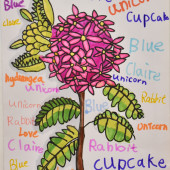 Blue
unicorn
Cupcake
Claire
Blue
Claire
hydrangea
unicorn
Unicorn
Blue
Rabbit
Rabbit
Love
Unicorn
Claire
Rabbit
Blue
cupcake